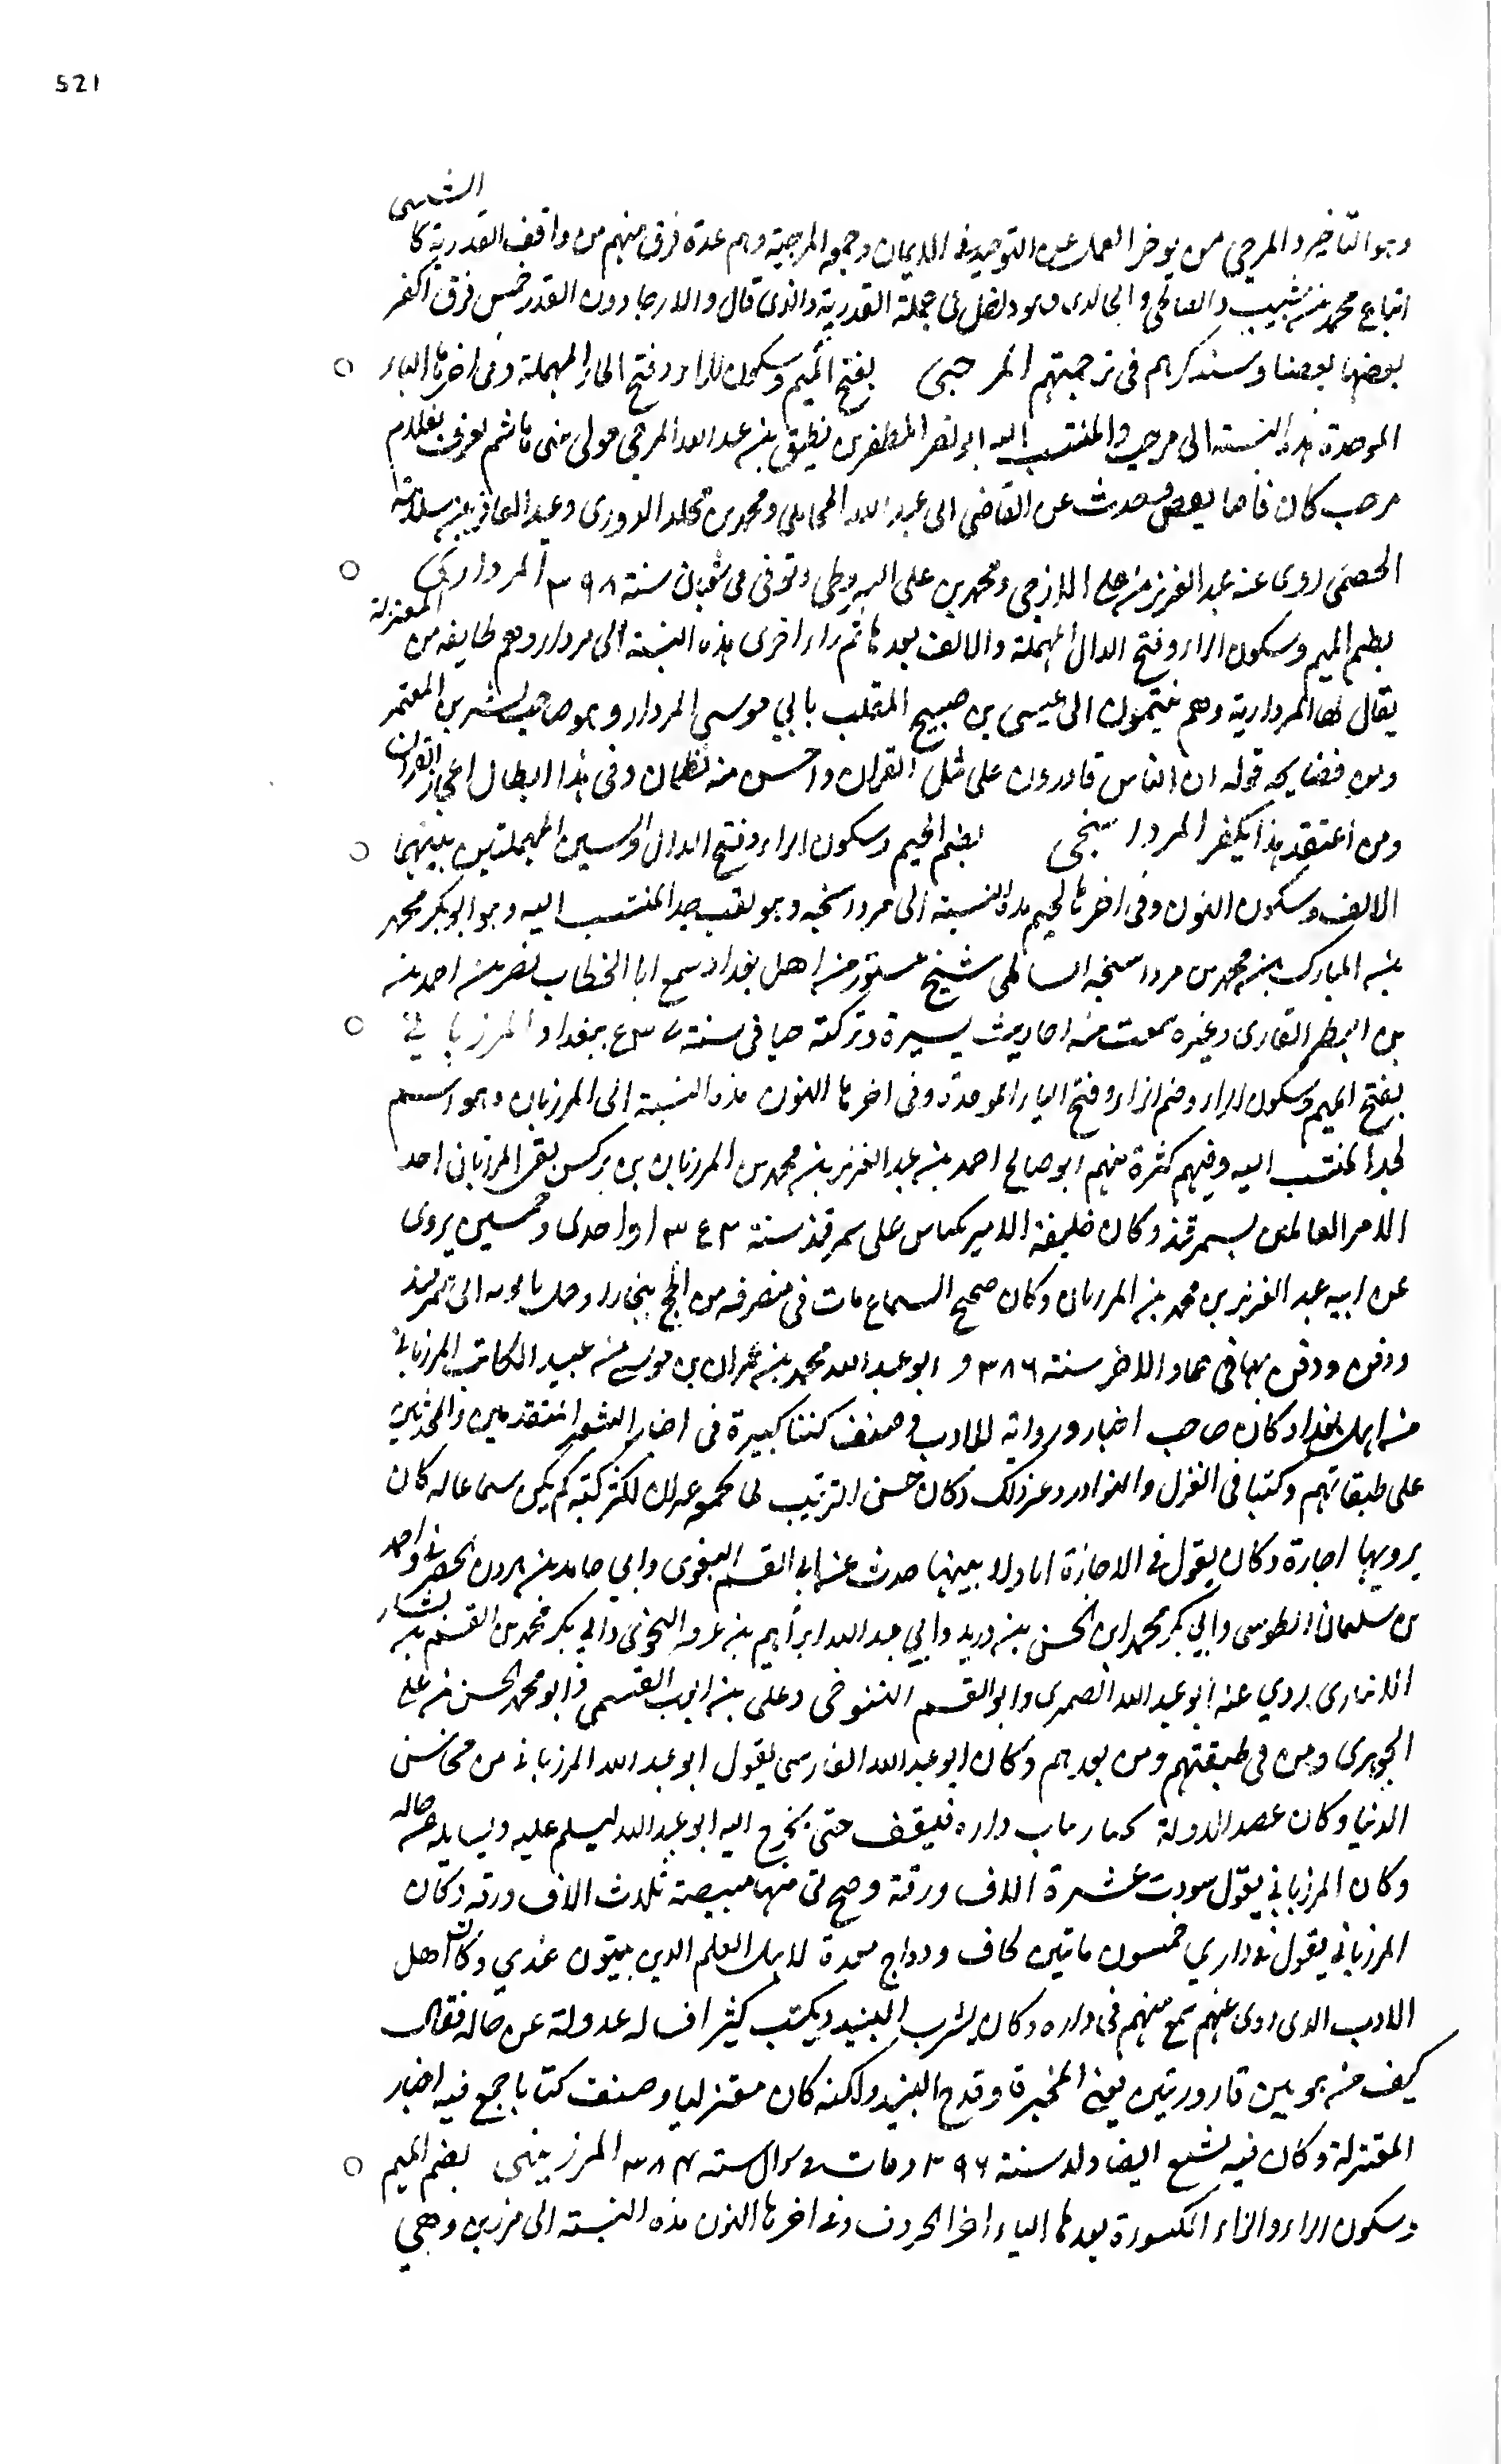 521
الشبيبى
وهو التأخير والمرجي من يوخر العمل عن التوحيد في الايمان وجمعه المرجية وهم عدة فرق منهم من واقف القدرية كا
اتباع محمد بن شبيب والصالحي والخالدى وهو داخل في جملة القدرية والذى قال والارجا دون القدر خمس فرق اكفر
بعضها بعضا وسنذكرهم في ترجمتهم المرحبى بفتح الميم وسكون الراء وفتح الحاء المهملة وفى اخرها الباء
الموحدة هذه النسبة الى مرحب والمنتسب اليه ابو نصر المظفر بن نظيف بن عبد الله المرحبي مولى بني هاشم يعرف بغلام
مرحب كان قاصا يقص وحدث عن القاضي ابى عبد الله المحاملي ومحمد بن مخلد الدورى وعبد الغافر بن سلامة
الحمصى روى عنه عبد العزيز بن على الازجى ومحمد بن على البروطى وتوفى فى شعبان سنة ٣٩٨ المرداري
بضم الميم وسكون الراء وفتح الدال المهملة والالف بعدها ثم راء اخرى هذه النسبة الى مردار وهم طايفه من المعتزلة
يقال لها المردارية وهم ينتمون الى عيسى بن صبيح الملقب بابي موسى المردار وهو صاحب بشر بن المعتمر
ومن فضايحه قوله ان الناس قادرون على مثل القران واحسن منه نظما وفى هذا ابطال اعجاز القران
ومن اعتقد هذا يكفر المردا سنجى بضم الميم وسكون الراء وفتح الدال والسين المهملتين بينهما
الالف وسكون النون وفى اخرها الجيم هذه النسبة الى مردا سنجه وهو لقب جد المنتسب اليه وهو ابو بكر محمد
بن المبارك بن محمد بن مردا سنجه السا شيخ مستور من اهل بغداد سمع ابا الخطاب نصر بن احمد بن
بن البطر القارى وغيره سمعت منه احاديث يسيرة وتركته حيا فى سنة ببغداد المرزباني
بفتح الميم وسكون الراء وضم الزاء وفتح الباء الموحدة وفى اخرها النون هذه النسبة الى المرزبان وهو اسم
لجد المنتسب اليه وفيهم كثرة منهم ابو صالح احمد بن عبد العزيز بن محمد بن المرزبان بن تركس المرزبانى احد
الامر العالمين بسمرقند وكان خليفة الامير على سمرقند سنة ٣٤٣ او احدى وخمسين يروى
عن ابيه عبد العزيز بن محمد بن المرزبان وكان صحيح السماع مات فى منصرفه من الحج ببخارا وحمل تابوته الى سمرقند
ودفن بها فى جماد الاخر سنة ٣٨٦ و ابو عبد الله محمد بن عمران بن موسى بن عبيد الكاتب المرزبانى
من اهل بغداد كان صاحب اخبار ورواية للادب وصنف كتبا كبيرة فى اخبار الشعرا المتقدمين والمحدثين
على طبقاتهم وكتبا فى الغزل والنوادر وغير ذلك وكان حسن الترتيب لما يجمعه غير ان اكثر كتبه لم يكن سماعا له كان
يرويها اجازة وكان يقول في الاجازة انا ولا يبينها حدث عن ابى القسم البغوى وابي حامد بن هرون الحضرمى واحمد
بن سلمان الطوسى وابي بكر محمد ابن الحسن بن دريد وابي عبد الله ابراهيم بن عرفه النحوى وابى بكر محمد بن القسم بن بشار
الانبارى روي عنه ابو عبد الله الصيمرى وابو القسم التنوخى وعلى بن ايوب القمى وابو محمد الحسن بن على
الجوهرى ومن فى طبقتهم ومن بعدهم وكان ابو عبد الله الفارسى يقول ابو عبد الله المرزبانى من محاسن
الدنيا وكان عضد الدولة يجتاز بباب داره فيقف حتى يخرج اليه ابو عبد الله ليسلم عليه ويسايله عن حاله
وكان المرزباني يقول سودت عشرة الاف ورقة وصح لى منها مبيضة ثلاث الاف ورقه وكان
المرزبانى يقول في داري خمسون ما بين لحاف ودواج معدة لاهل العلم الذين يبيتون عندي وكان اهل
الادب الذى روى عنهم سمع منهم فى داره وكان يشرب النبيذ ويكتب كثيرا عن حاله فقال
كيف من هو بين قارورتين يعنى المحبرة وقدح النبيذ ولكنه كان معتزليا وصنف كتابا جمع فيه اخبار
المعتزلة وكان فيه تشيع ايضا ولد سنة ٢٩٦ ومات في شوال سنة ٣٨٤ المرزينى بضم الميم
وسكون الراء والزاء المكسورة بعدها الياء اخر الحروف وفى اخرها النون هذه النسبة الى مرزين وهي